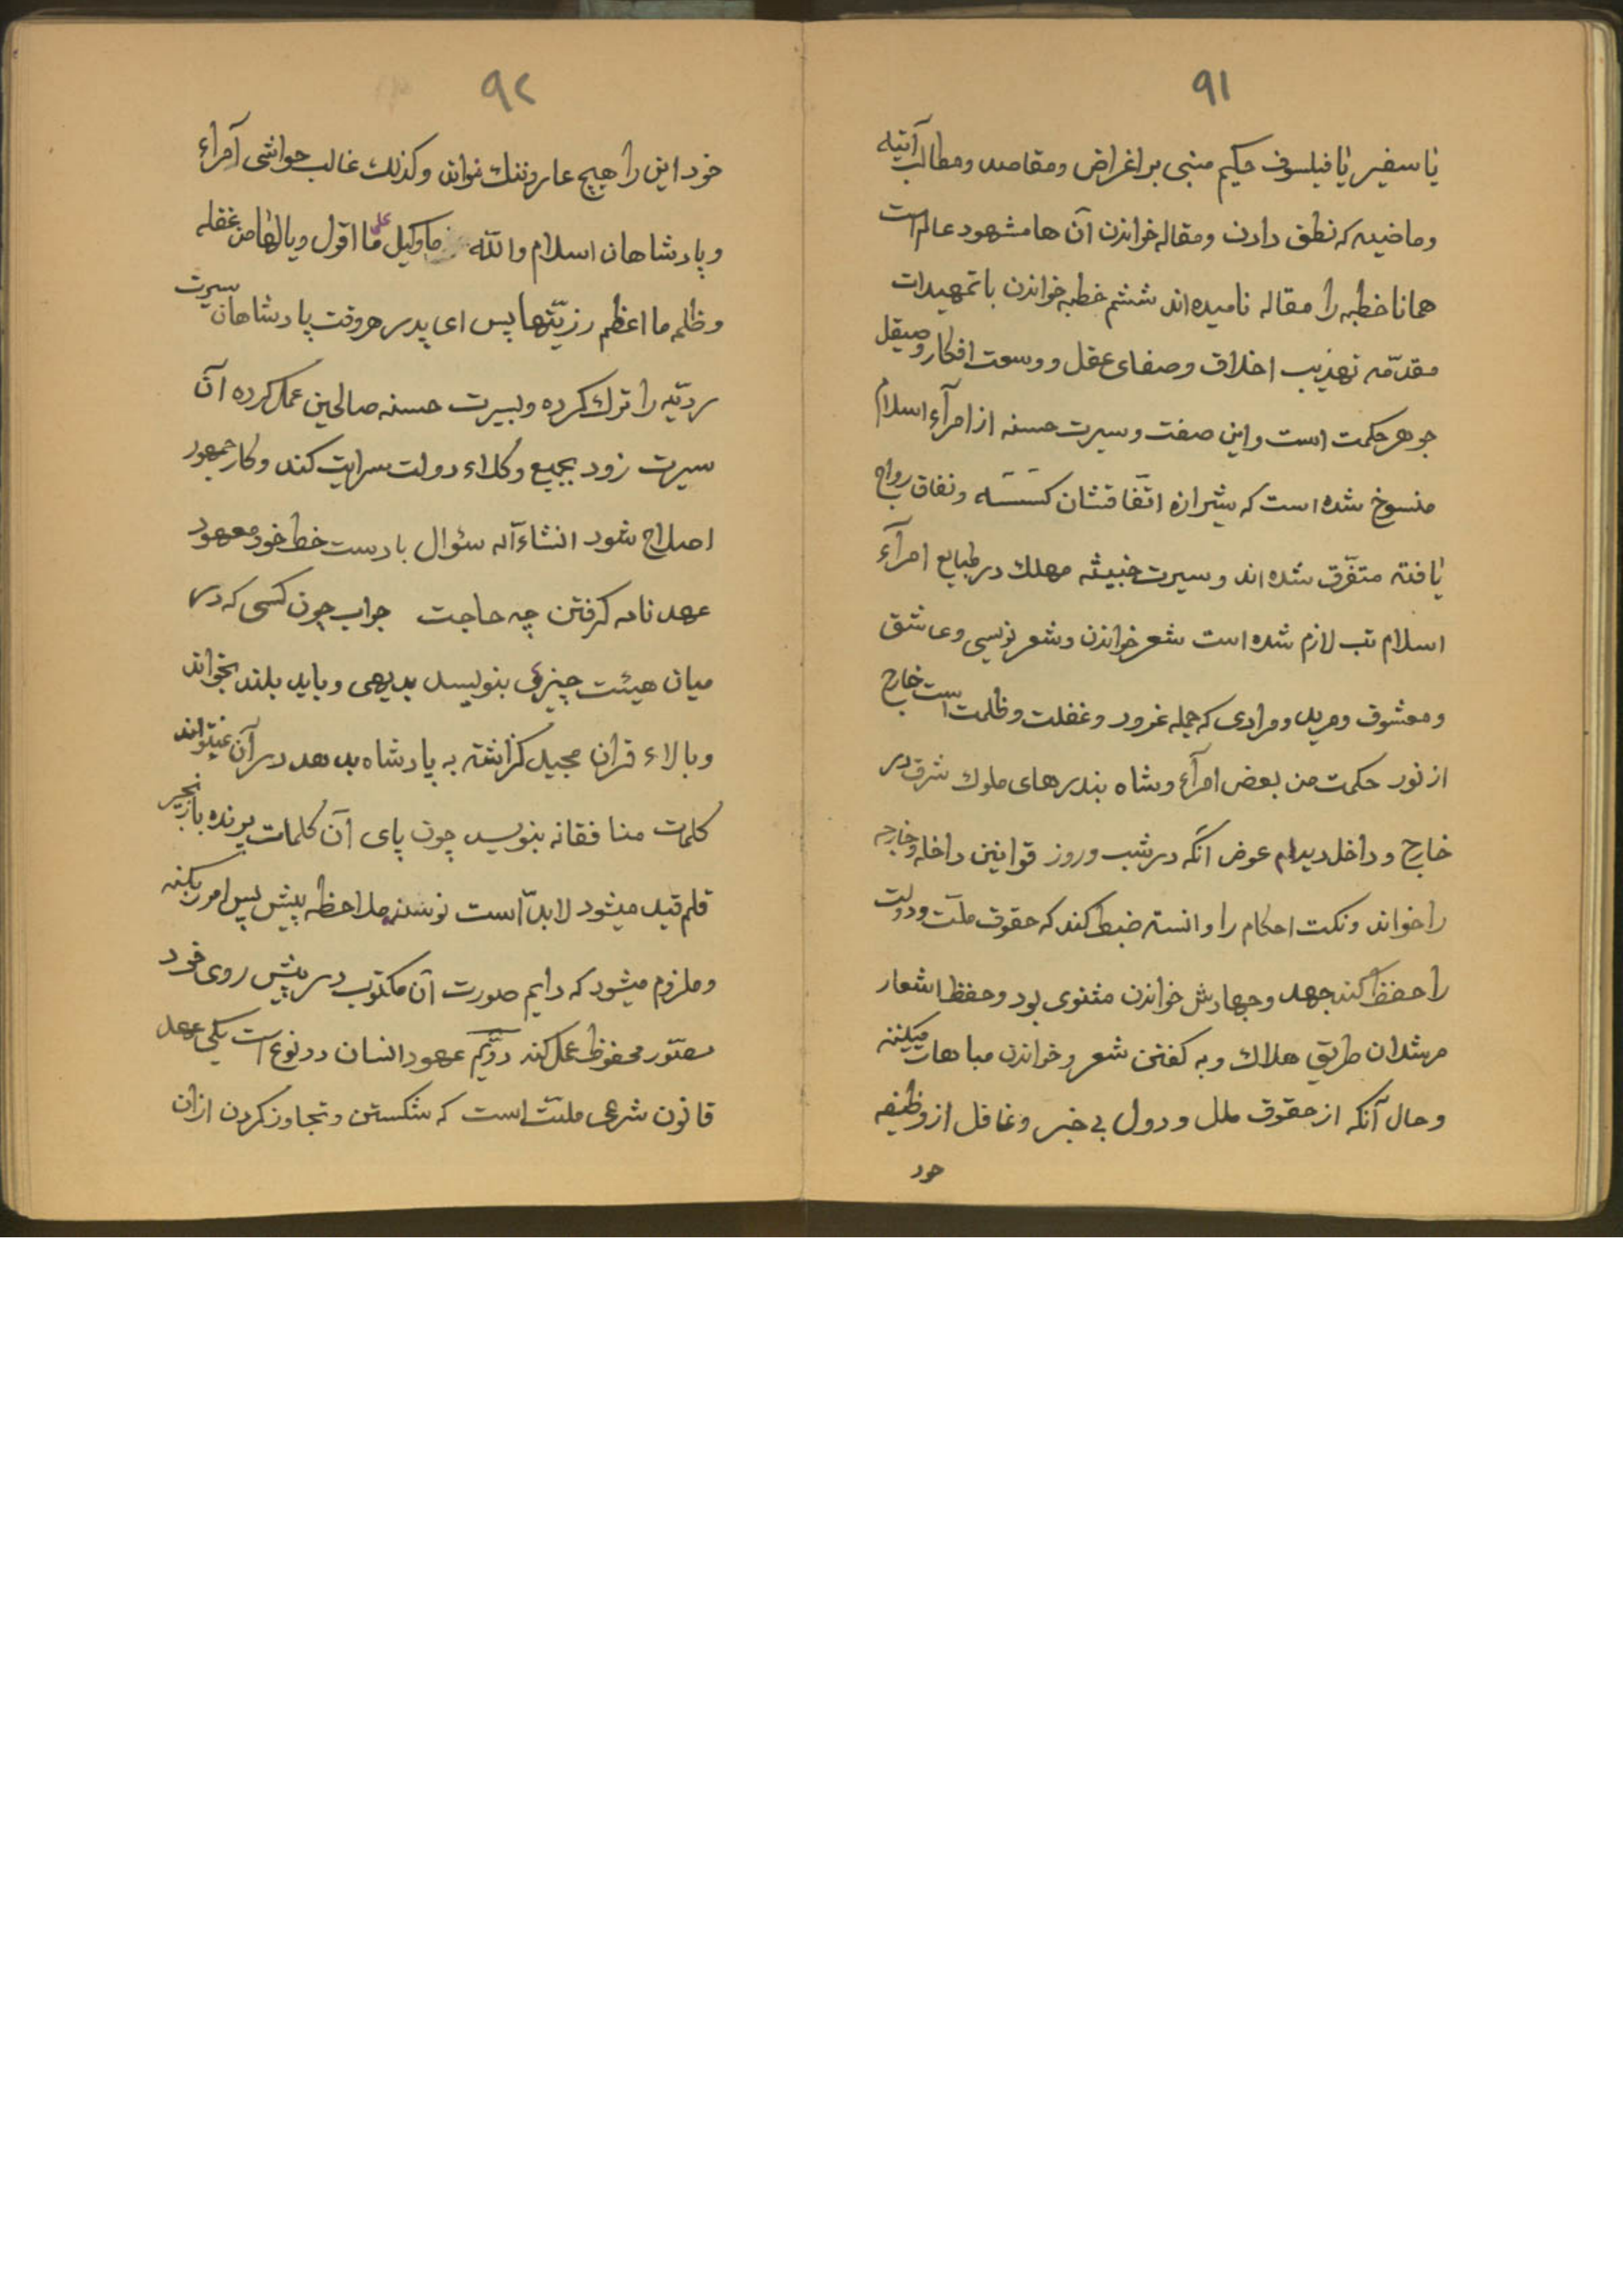 ۹۱
یا سفیر یا فیلسوف حکیم مبنی بر اغراض ومقاصد ومطالب آتیه
وماضیه که نطق دادن ومقاله خواندن آن ها مشهود عالم است
همانا خطبه را مقاله نامیده اند ششم خطبه خواندن با تمهیدات
مقدّمه تهذیب اخلاق وصفای عقل ووسعت افکار وصیقل
جوهر حکمت است واین صفت وسیرت حسنه از امرآء اسلام
منسوخ شده است که شیرازه اتّفاقشان کسسته ونفاق رواج
یافته متفرّق شده اند وسیرت خبیثه مهلك در طبایع امرآء
اسلام تب لازم شده است شعر خواندن وشعر نویسی وعاشق
ومعشوق ومرید ومرادی که جمله غرور وغفلت وظلمت است خارج
از نور حکمت من بعض امرآء وشاه بندرهای ملوك شرق در
خارج وداخل دیدم عوض آنکه در شب وروز قوانین داخله وخارجه
را خواند ونکت احکام را دانسته ضبط کند که حقوق ملّت ودولت
را حفظ کند جهد وجهادش خواندن مثنوی بود وحفظ اشعار
مرشدان طریق هلاك وبه کفتن شعر وخواندن مباهات میکنند
وحال آنکه از حقوق ملل ودول بی خبر وغافل از وظیفه
خود
۹۲
خود این را هیچ عار وننك نخواند وکذلك غالب حواشی امرآء
وپادشاهان اسلام والله وکیل علی ما اقول ویا لها من غفله
وظلمه ما اعظم رزیّتها پس ای پدر هر وقت پادشاهان سیرت
ردیّه را ترك کرده وبسیرت حسنه صالحین عمل کرده آن
سیرت زود بجمیع وکلاء دولت سرایت کند وکار جمهور
اصلاح شود انشاءالله سؤال با دست خط خود معهود
عهد نامه کرفتن چه حاجت جواب چون کسی که در
میان هیئت چیزی بنویسد بدیهی وباید بلند بخواند
وبالاء قرآن مجید کزاشته به پادشاه بدهد در آن نمیتواند
کلمات منافقانه بنویسد چون پای آن کلمات پرنده با زنجیر
قلم قید میشود لابدّ است نویسنده ملاحظه پیش پس امر بکند
وملزوم میشود که دایم صورت آن مکتوب در پیش روی خود
مصوّر محفوظ عمل کند دوّیم عهود انسان دو نوع است یکی عهد
قانون شرعی ملّت است که شکستن وتجاوز کردن از ان